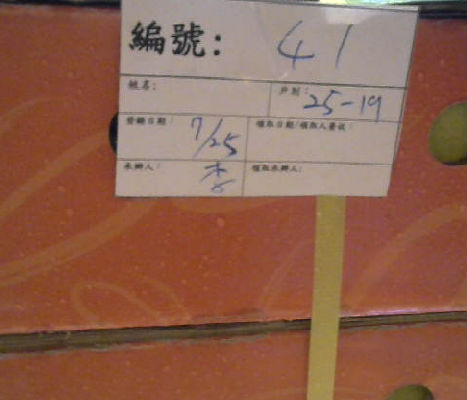 編號: 41
姓名: 戶別: 25-19
登錄日期: 7/25 領取日期/領取人簽收:
承辦人: 李 領取承辦人: